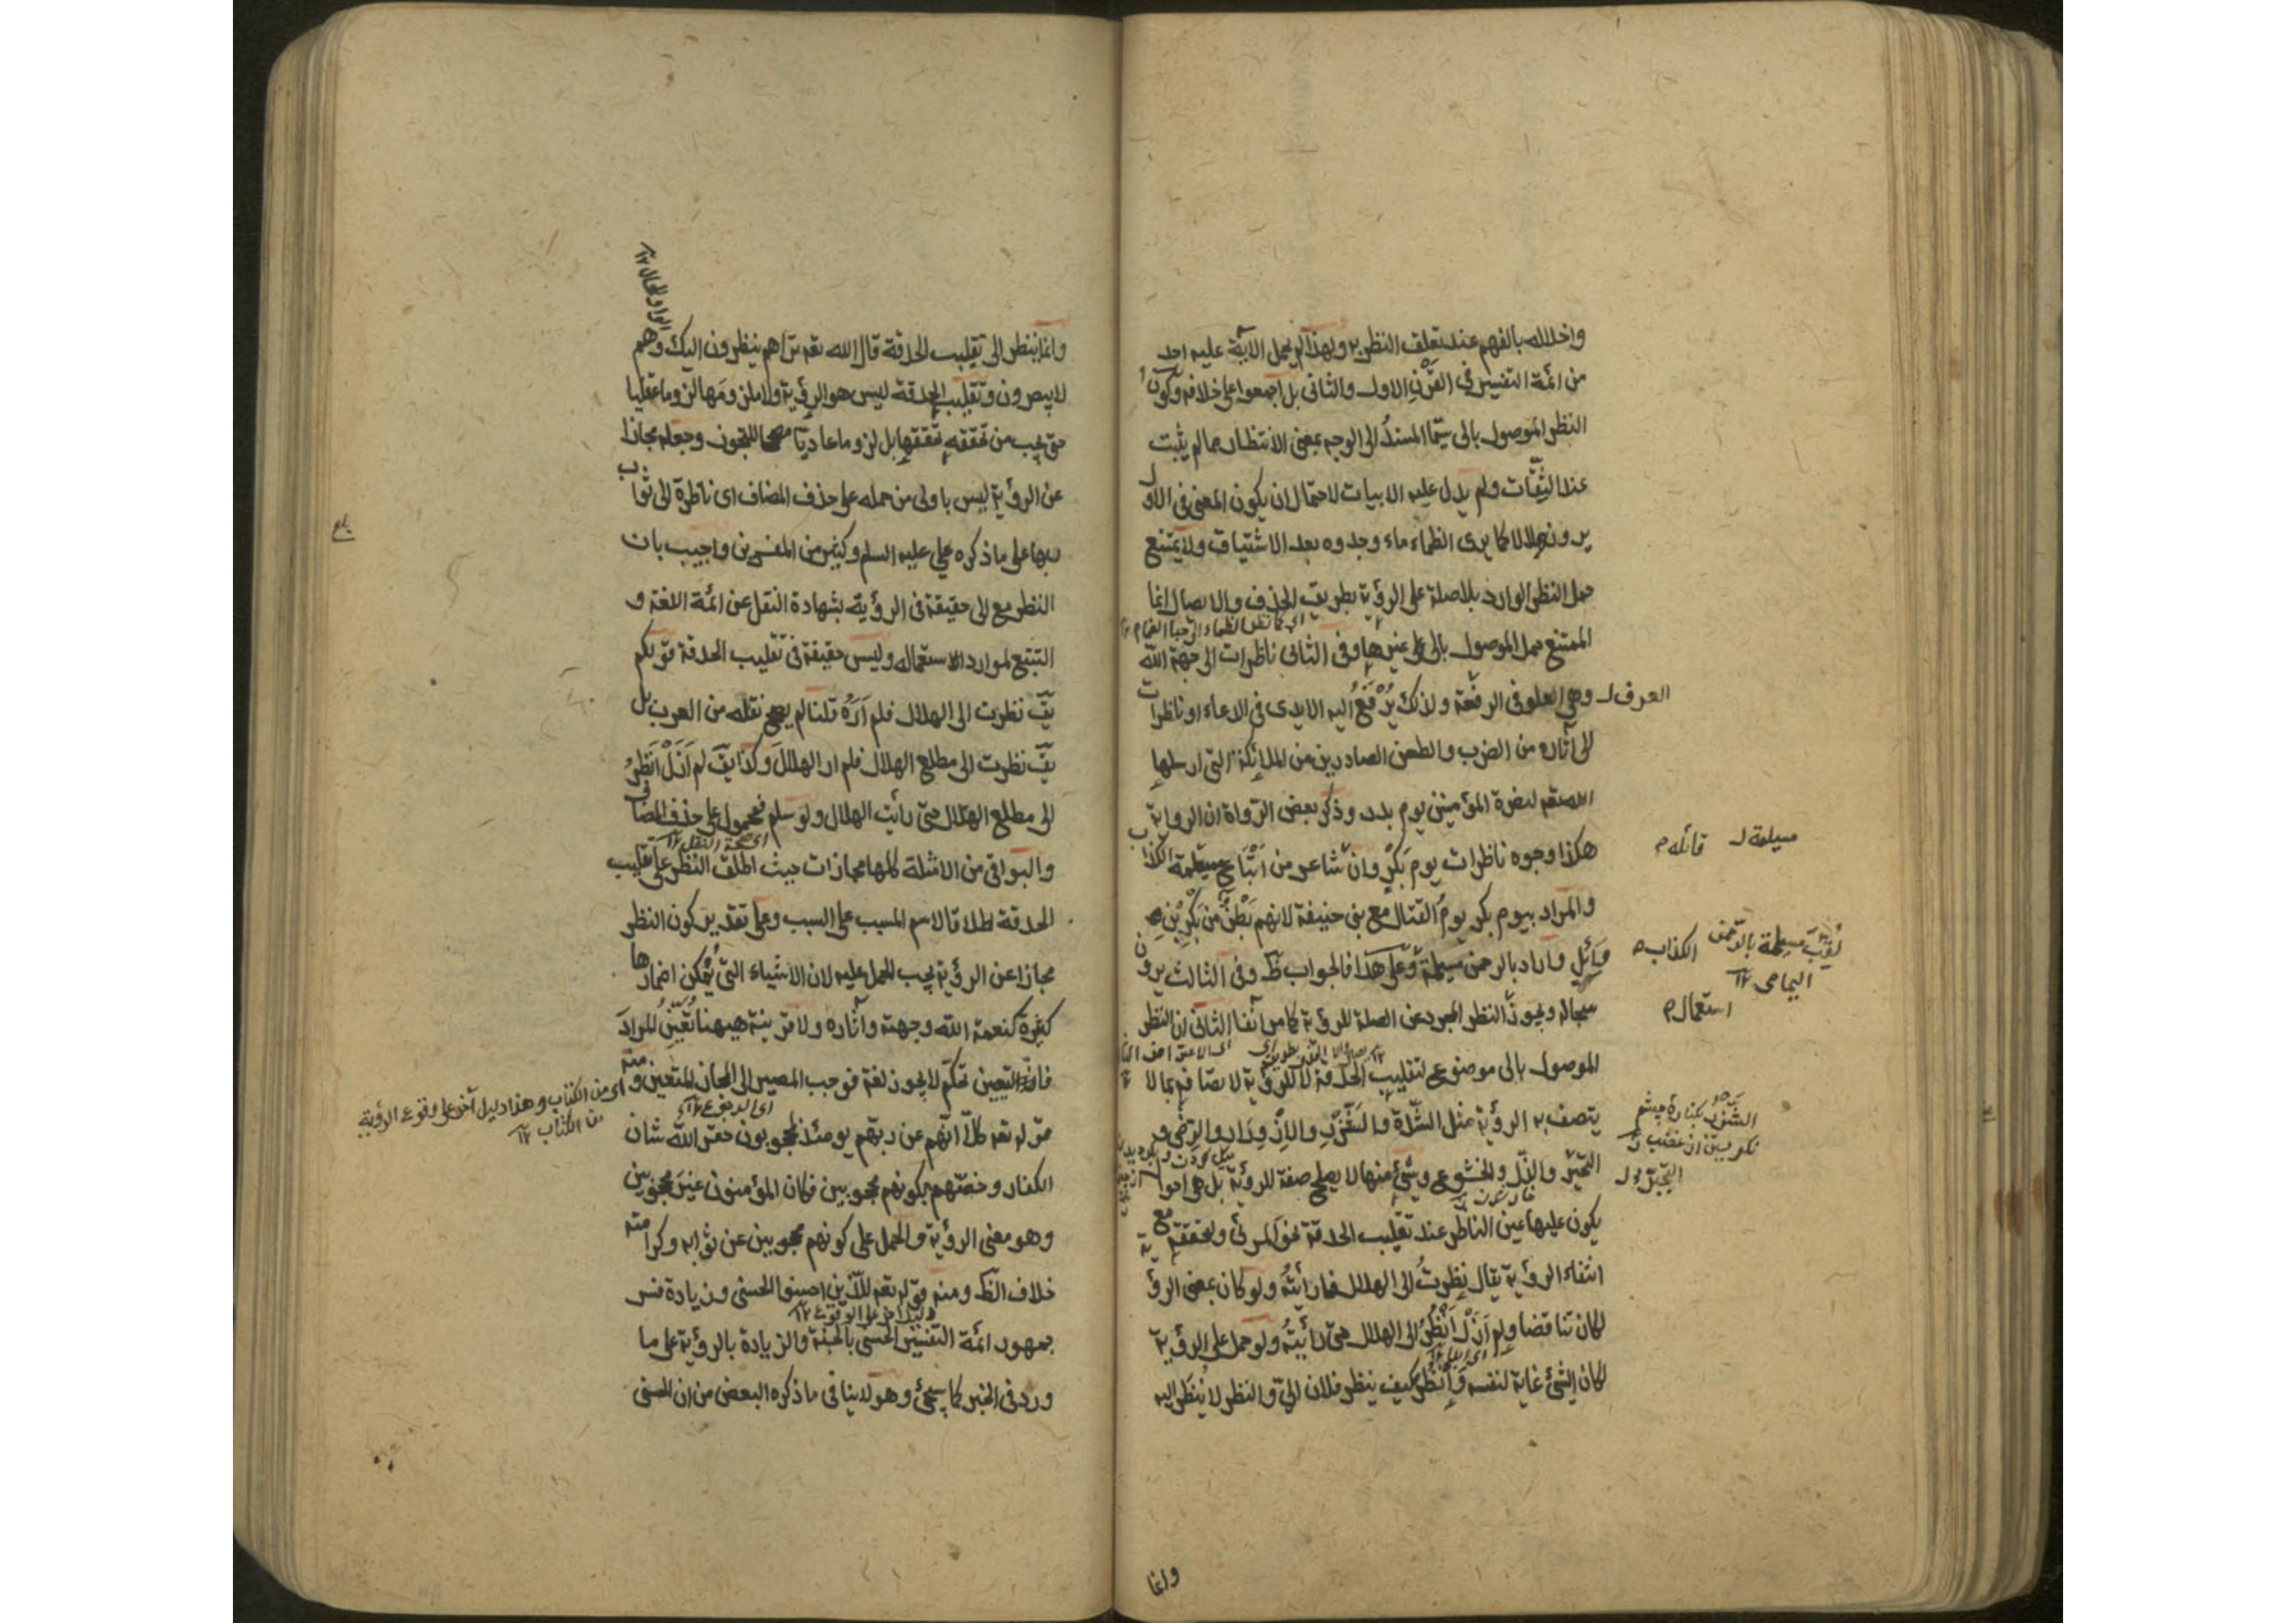 واخلاله بالفهم عند تعلق النظر به ولهذا لم يحمل الآية عليه احد
من ائمة التفسير في القرن الاول والثاني بل اجمعوا على خلافه وكون
النظر الموصول بالى سيما المسند الى الوجه بمعنى الانتظار مما لم يثبت
عند الثقات ولم يدل عليه الابيات لاحتمال ان يكون المعنى في الاول
يرون بلالا كما يرى الظماء ماء وجدوه بعد الاشتياق ولا يمتنع
حمل النظر الوارد بلا صلة على الرؤية بطريق الحذف والايصال انما
اي كما نظر الظماء الى حيا الغمام ١٢
الممتنع حمل الموصول بالى على غيرها وفي الثاني ناظرات الى جهة الله
وهي العلو في الرفعة ولذلك يرفع اليه الايدي في الدعاء او ناظرات
العرف
الى آثاره من الضرب والطعن الصادرين من الملائكة التي ارسلها
الله تعم لنصرة المؤمنين يوم بدر وذكر بعض الرواة ان الرواية
هكذا وجوه ناظرات يوم بكر وان شاعر من اتباع مسيلمة الكذاب
مسيلمة قائله
والمراد بيوم بكر يوم القتال مع بني حنيفة لانهم بطن من بكر بن
وائل واراد بالرحمن مسيلمة وعلى هذا فالجواب ظ وفي الثالث يرون
لقب مسيلمة الكذاب
اليمامى ١٢
سجاله ويجوز النظر المجرد عن الصلة للرؤية كما مر آنفا الثاني ان النظر
استعمال
الموصول بالى موضوع لتقليب الحدقة لا للرؤية لاتصافه بما لا
يتصف به الرؤية مثل الشدة والشزر والازورار والرضى و
التحير والذل والخشوع وشئ منها لا يصلح صفة للرؤية بل هي احوال
يكون عليها عين الناظر عند تقليب الحدقة نحو المرئى ولتحققه مع
انتفاء الرؤية يقال نظرت الى الهلال فما رأيته ولو كان بمعنى الرؤية
لكان تناقضا ولم ازل انظر الى الهلال حتى رأيته ولو حمل على الرؤية
لكان الشئ غاية لنفسه وانظر كيف ينظر فلان الي والنظر لا ينظر اليه
وانما
وانما ينظر الى تقليب الحدقة قال الله تعم تراهم ينظرون اليك وهم
لا يبصرون وتقليب الحدقة ليس هو الرؤية ولا ملزومها لزوما عقليا
حتى يجب من تحققه تحققها بل لزوما عاديا مصححا للتجوز وجعله مجازا
عن الرؤية ليس باولى من حمله على حذف المضاف اى ناظرة الى ثواب
ربها على ما ذكره علي عليه السلم وكثير من المفسرين واجيب بان
النظر مع الى حقيقة في الرؤية بشهادة النقل عن ائمة اللغة و
التتبع لموارد الاستعماله وليس حقيقة في تقليب الحدقة قولكم
يق نظرت الى الهلال فلم اره قلنا لم يصح نقله من العرب بل
يق نظرت الى مطلع الهلال فلم ار الهلال وكذا يق لم ازل انظر
الى مطلع الهلال حتى رأيت الهلال ولو سلم فمحمول على حذف المضاف
اى صحة النقل ١٢
والبواقى من الامثلة كلها مجازات حيث اطلق النظر على تقليب
الحدقة اطلاقا لاسم المسبب على السبب وعلى تقدير كون النظر
مجازا عن الرؤية يجب الحمل عليه لان الاشياء التى يمكن اضمارها
كثيرة كنعمة الله وجهته وآثاره ولا قرينة هيهنا تعين المراد
فان التعيين تحكم لا يجوز لغة فوجب المصير الى المجاز المتعين ومنه
اى من الكتاب وهذا دليل آخر على وقوع الرؤية
من الكتاب ١٢
قوله تعم كلا انهم عن ربهم يومئذ لمحجوبون حقر الله شان
الكفار وخصهم بكونهم محجوبين فكان المؤمنون غير محجوبين
وهو معنى الرؤية والحمل على كونهم محجوبين عن ثوابه وكرامته
خلاف الظ ومنه قوله تعم للذين احسنوا الحسنى وزيادة فسر
دليل آخر على الوقوع ١٢
جمهور ائمة التفسير الحسنى بالجنة والزيادة بالرؤية على ما
ورد في الخبر كما سيجئ وهو لا ينافى ما ذكره البعض من ان الحسنى